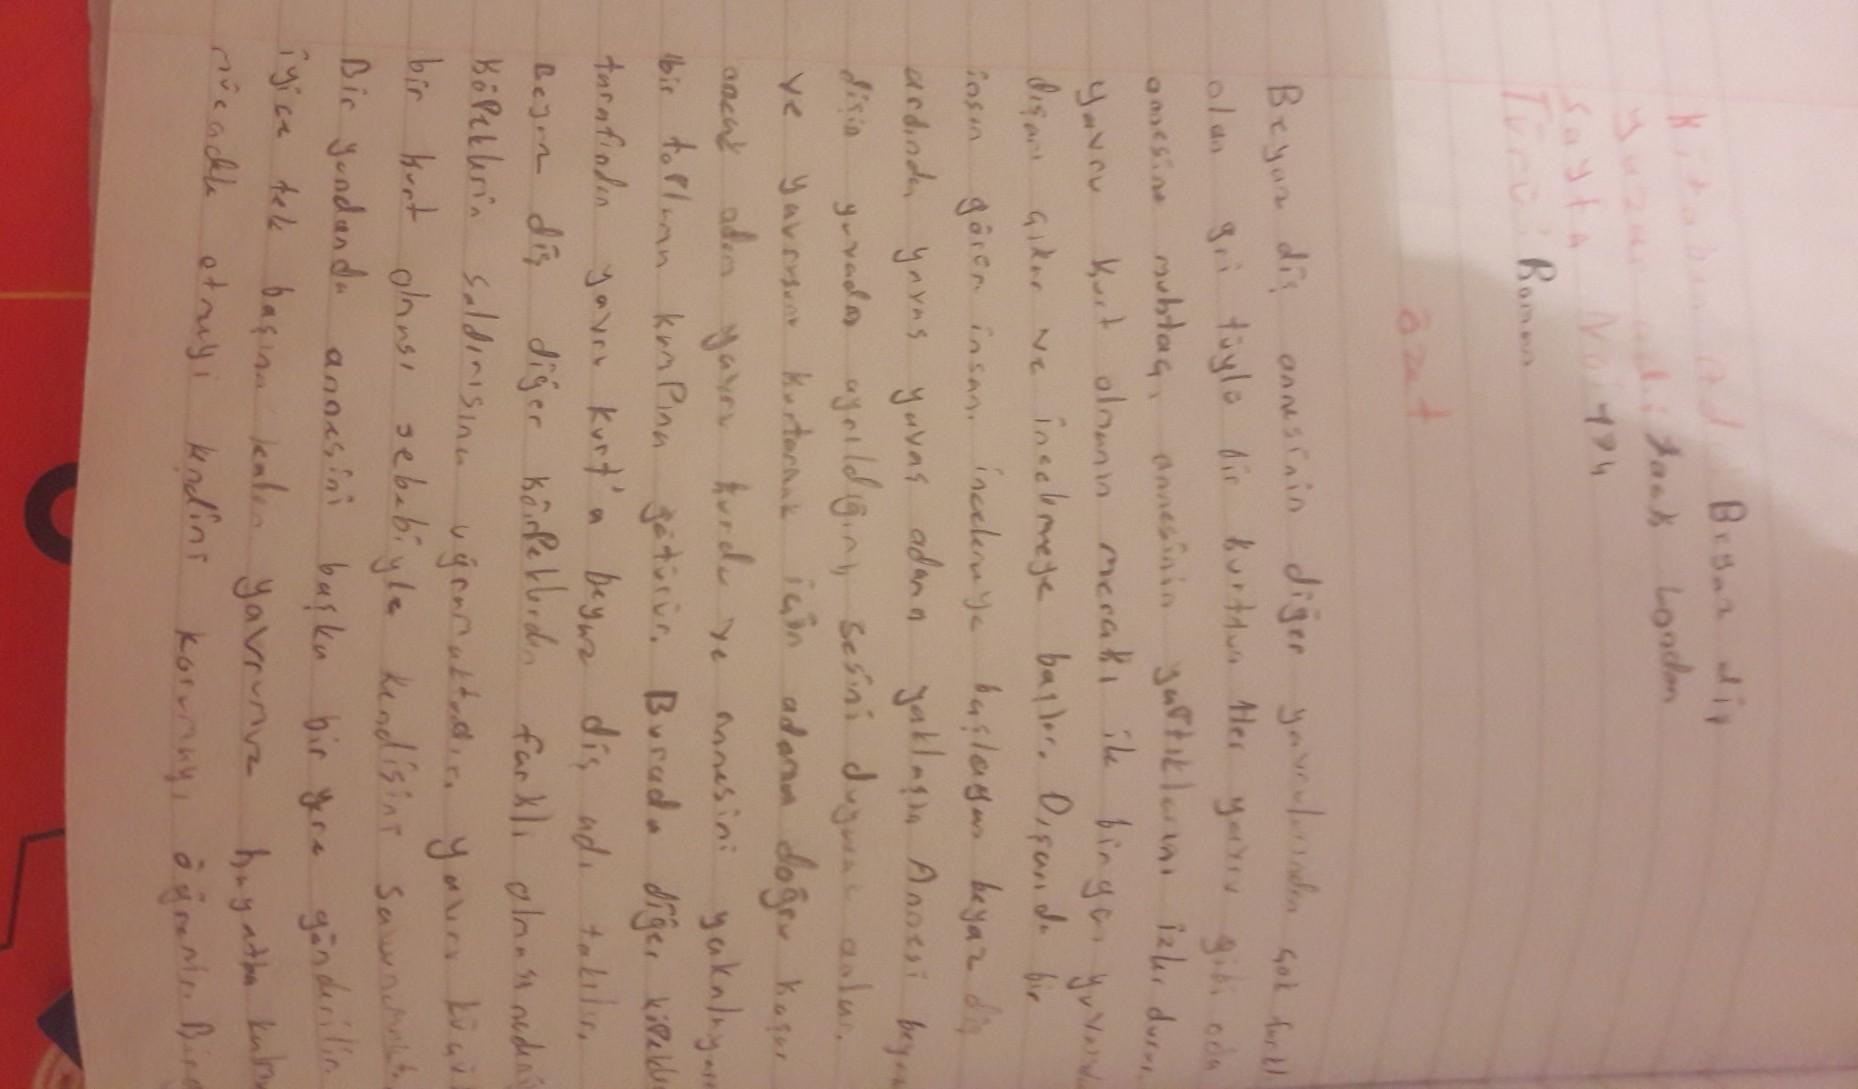 Kitabın Adı: Beyaz diş
Yazar adı: Jack London
Sayfa No: 194
Türü: Roman
özet
Beyaz diş annesinin diğer yavrularından çok farklı
olan gri tüylü bir kurttur. Her yavru gibi oda
annesine muhtaç, annesinin yaptıklarını izler durur.
yavru kurt olmanın merakı ile birgün yuvasından
dışarı çıkar ve incelemeye başlar. Dışarıda bir
insan gören insanı incelemeye başlayan beyaz diş
ardından yavaş yavaş adama yaklaşır. Annesi beyaz
dişin yuvadan ayrıldığını, sesini duyunca anlar.
ve yavrusunu kurtarmak için adama doğru koşar
ancak adam yavru kurdu ve annesini yakalayarak
bir toplama kampına götürür. Burada diğer köpekler
tarafından yavru kurt'a beyaz diş adı takılır.
Beyaz diş diğer köpeklerden farklı olması nedeni
Köpeklerin saldırısına uğramaktadır. yavru küçük
bir kurt olması sebebiyle kendisini savunamaktadır
Bir yandanda annesini başka bir yere gönderilin
iyice tek başına kalan yavrumuz hayatta kalma
mücadele etmeyi kendini korumayı öğrenir.